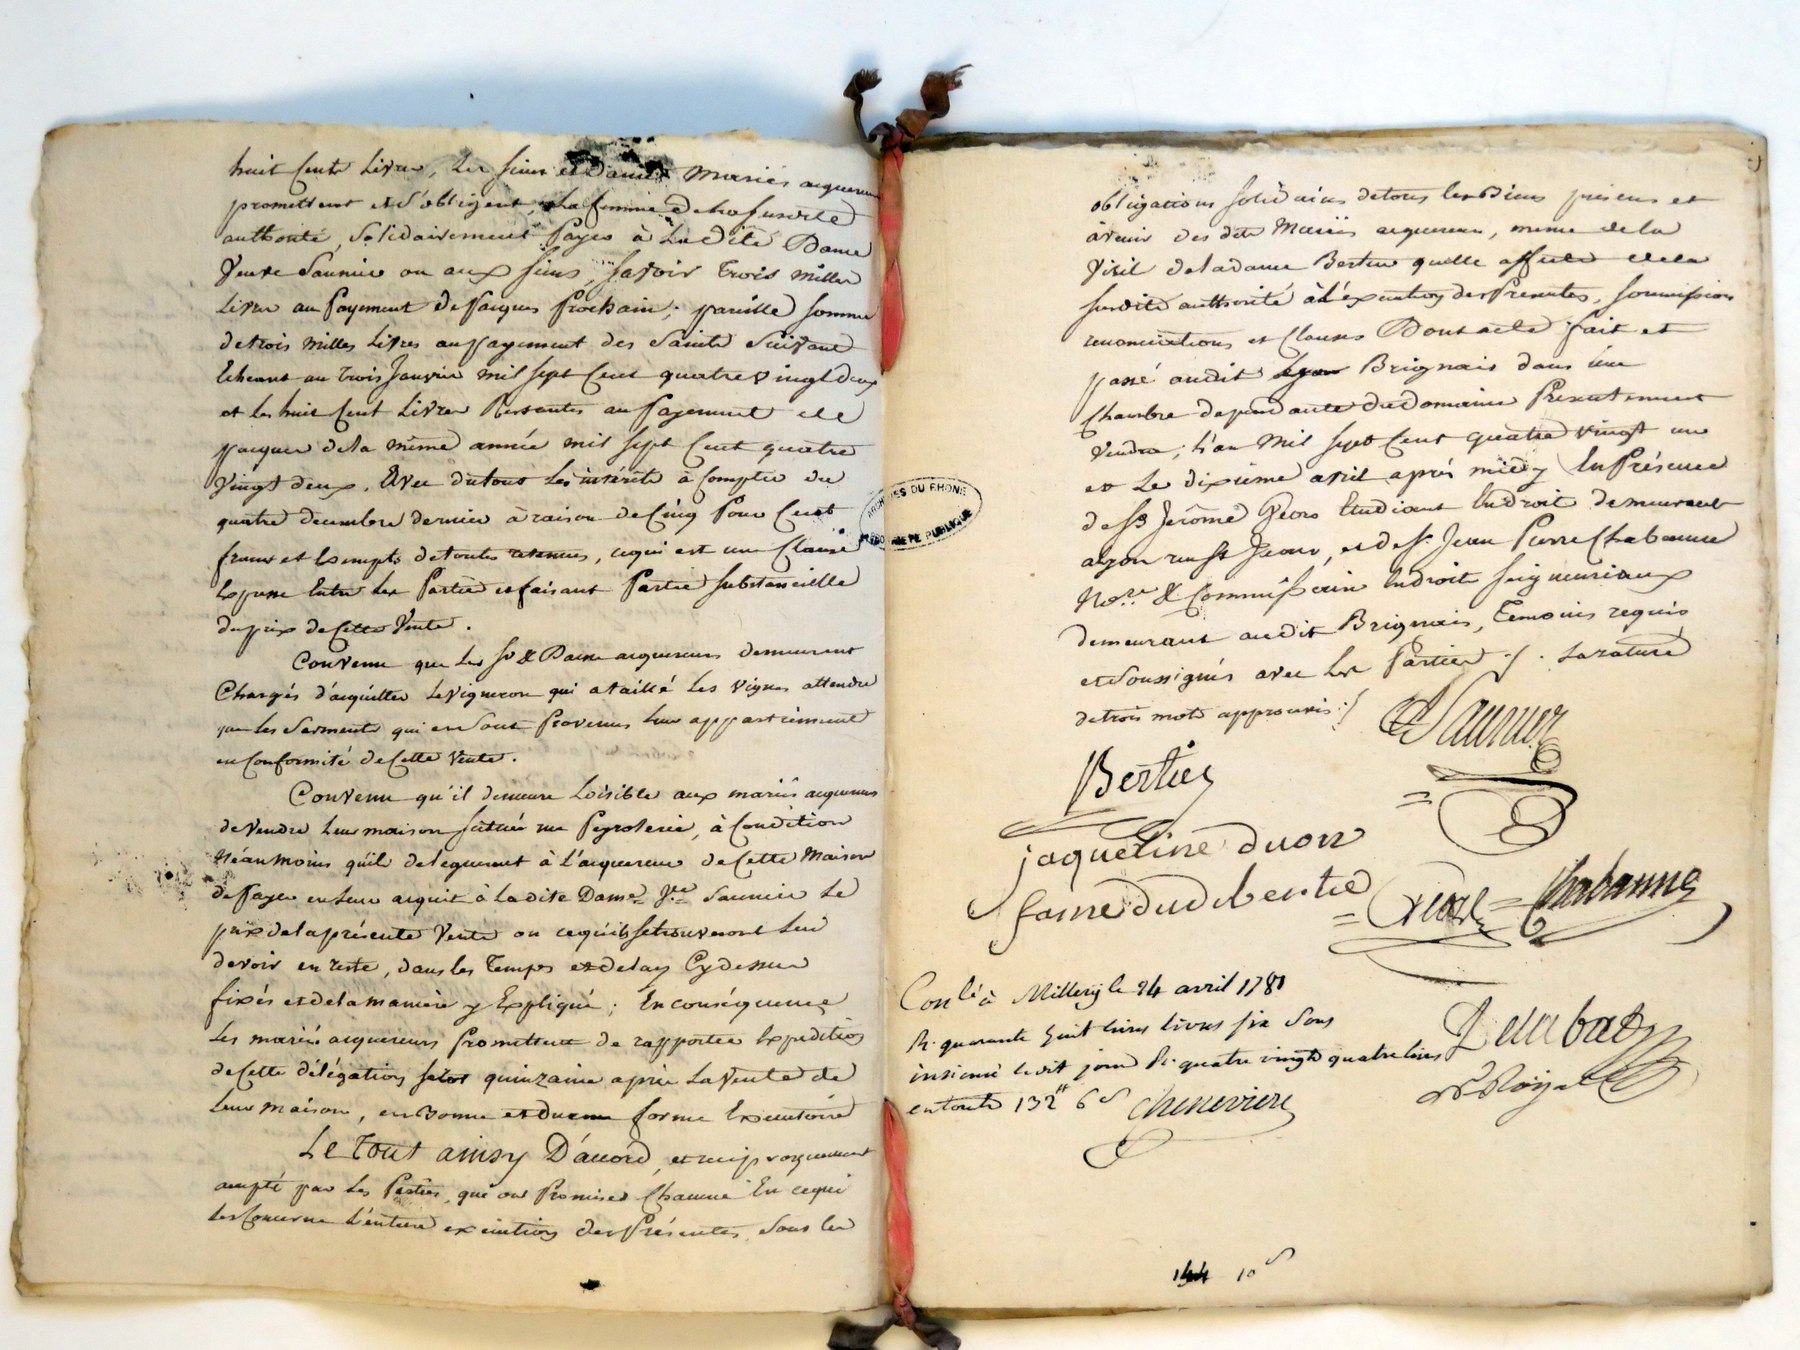 huit Cents Livres, Les sieur et Dame Mariés acquereurs
promettent et s'obligent, La femme de La susdite
authorité, Solidairement Payer à Ladite Dame
Veuve Saunier ou aux siens, savoir Trois Milles
Livres au Payement de Pacques Prochain; pareille somme
de trois Milles Livres au payement des Saints Suivant
Echeant au trois Janvier Mil sept Cent quatre vingt deux
et Les huit Cent Livres Restantes au Payement de
pacques de la même année mil sept Cent quatre
vingt deux. Avec du tout Les intérêts à Compter du
quatre decembre dernier à raison de Cinq Pour Cent
francs et Exempts de toutes retenues, ce qui est une Clause
Expresse Entre Les Parties et faisant Partie substancielle
du prix de Cette Vente.
Convenu que Les Sr & Dame acquereurs demeurent
Chargés d'acquitter Le vigneron qui a taillé Les vignes attendu
que Les Sarments qui en sont Provenus leur appartiennent
en Conformité de Cette Vente.
Convenu qu'il demeure Loisible aux mariés acquereurs
de vendre Leur maison située rue Peyrolerie, à Condition
Néanmoins qu'ils delegueront à L'acquereur de Cette Maison
de Payer en Leur acquit à La dite Dame Vve Saunier Le
prix de la présente Vente ou ce qu'ils se trouveront Lui
devoir en reste, dans les Temps et delay Cy dessus
fixés et de la maniere y Expliqué; En conséquence
Les mariés acquereurs Promettent de rapporter Expedition
de Cette délégation quinzaine après La vente de
Leur maison, en Bonne et due forme Executoire
Le Tout ainsy D'accord, et reciproquement
accepté par Les Parties, qui ont Promises Chacune En ce qui
Les Concerne L'entiere execution des Présentes, Sous les
obligations solidaires de tous les Biens présens et
à venir des dits Mariés acquereurs, meme de la
Vigil de la dame Bertier qu'elle affecte de la
susdite authorité à l'execution des Presentes, soumissions
renonciations et Clauses Dont acte fait et
passé audit Lyon Brignais dans une
Chambre dependante du Domaine Presentement
Vendu, L'an Mil sept Cent quatre vingt un
et Le dixieme avril après midy En Présence
de Sr Jerôme Etudiant En droit demeurant
à Lyon rue St Jean, et de Sr Jean Pierre Chabanne
Nore & Commissaire En droits seigneuriaux
demeurant audit Brignais, Temoins requis
et soussignés avec Les Parties ./. La rature
de trois mots approuvés ./.
Saunier
Bertier
jaqueline duon
fame dud bertié
Chabanne
ARCHIVES DU RHÔNE
PUBLIQUE
Conlé à Millery le 24 avril 1781
R. quarante huit livres six sous
insinué ledit jour R. quatre vingt quatre livres
en tout 132 tt 6 s Chenevière
Delabat
Nre Royal
144 10 s